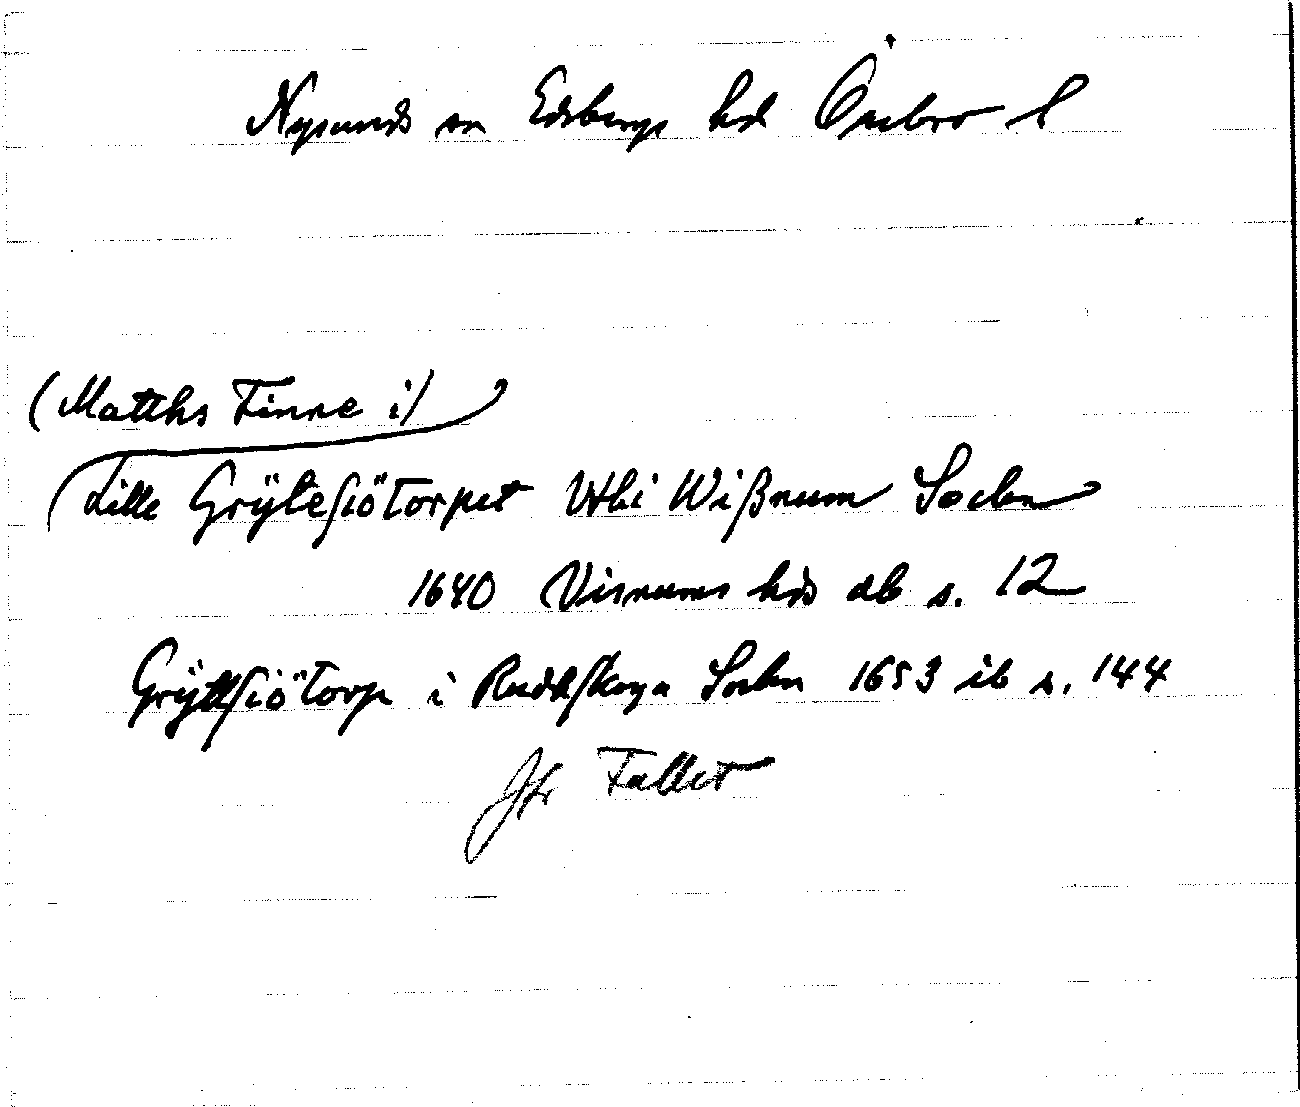 Nysunds sn Edsbergs hd Örebro l
(Matths Finne i)
Lille Grÿtesiötorpet Uthi Wißnum Sochn
1640 Visnums hds db s. 12
Grÿttsiötorp i Rudskoga Sochn 1653 ib s. 144
Jfr Fallet